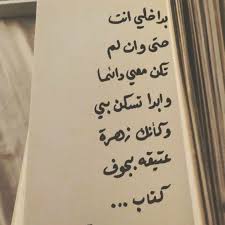 بداخلي انت
حتى وان لم
تكن معي دائما
وابدا تسكن بي
وكأنك زهرة
عتيقه بجوف
كتاب ...